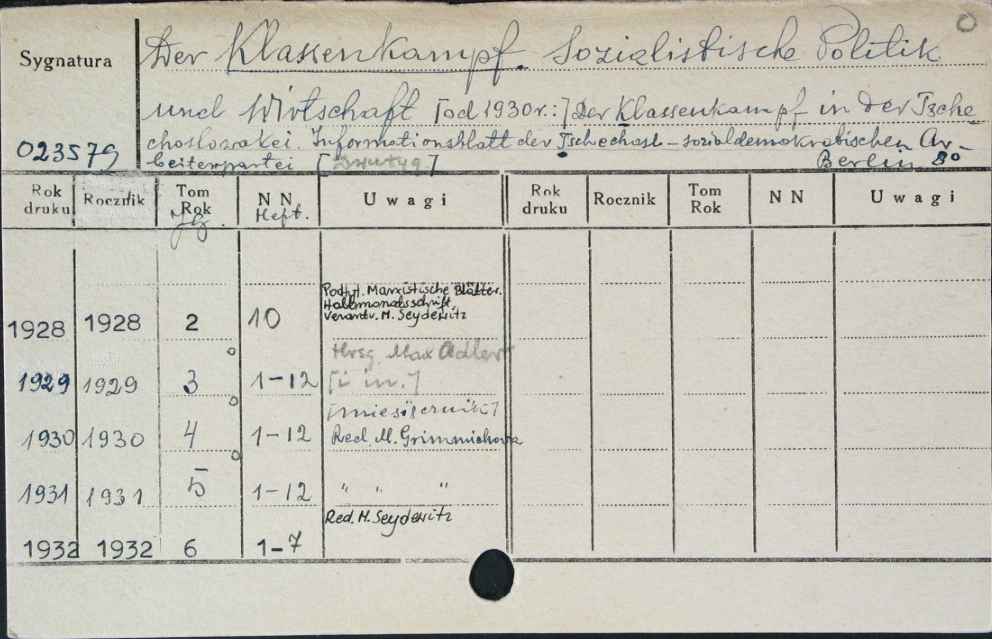 Sygnatura
Der Klassenkampf. Sozialistische Politik
und Wirtschaft [od 1930 r.:] Der Klassenkampf in der Tsche
choslovakei. Informationsblatt der Tschechosl-sozialdemokratischen Ar-
023579
beiterpartei [ ]
Berlin 8o
Rok druku Rocznik Tom Rok N N Uwagi Rok druku Rocznik Tom Rok N N Uwagi
Jg. Heft.
Podt. Marxistische Blätter.
Halbmonatsschrift,
Verantv. M. Seydewitz
1928 1928 2 10
Hrsg. Max Adler
1929 1929 3 1-12 [i in.]
[miesięcznik]
1930 1930 4 1-12 Red. M.
1931 1931 5 1-12 " " "
Red. M. Seydewitz
1932 1932 6 1-7